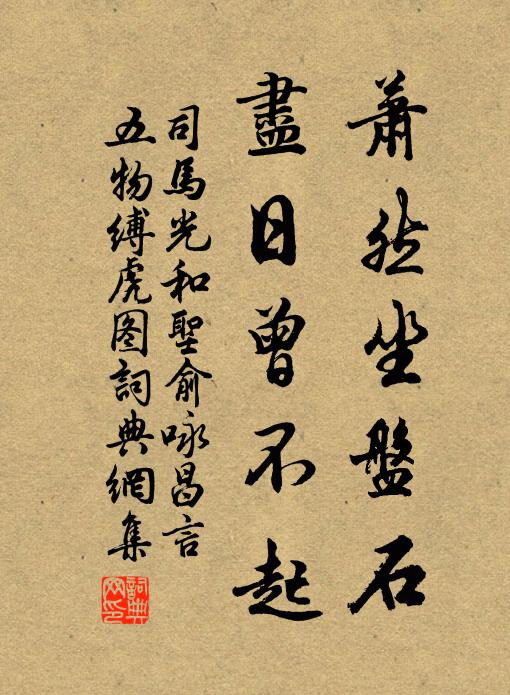 蕭然坐盤石
盡日曾不起
司馬光和聖俞咏昌言
五物縛虎图詞典網集
詞典网印